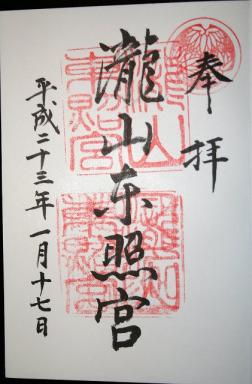 奉拝
瀧山东照宮
平成二十三年一月十七日